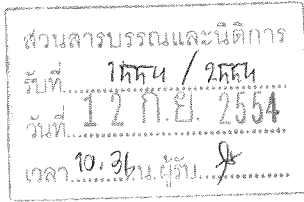 ส่วนสารบรรณและนิติการ
รับที่.......... / ๒๕๕๔
วันที่ 12 ก.ย. 2554
เวลา 10.36 น. ผู้รับ